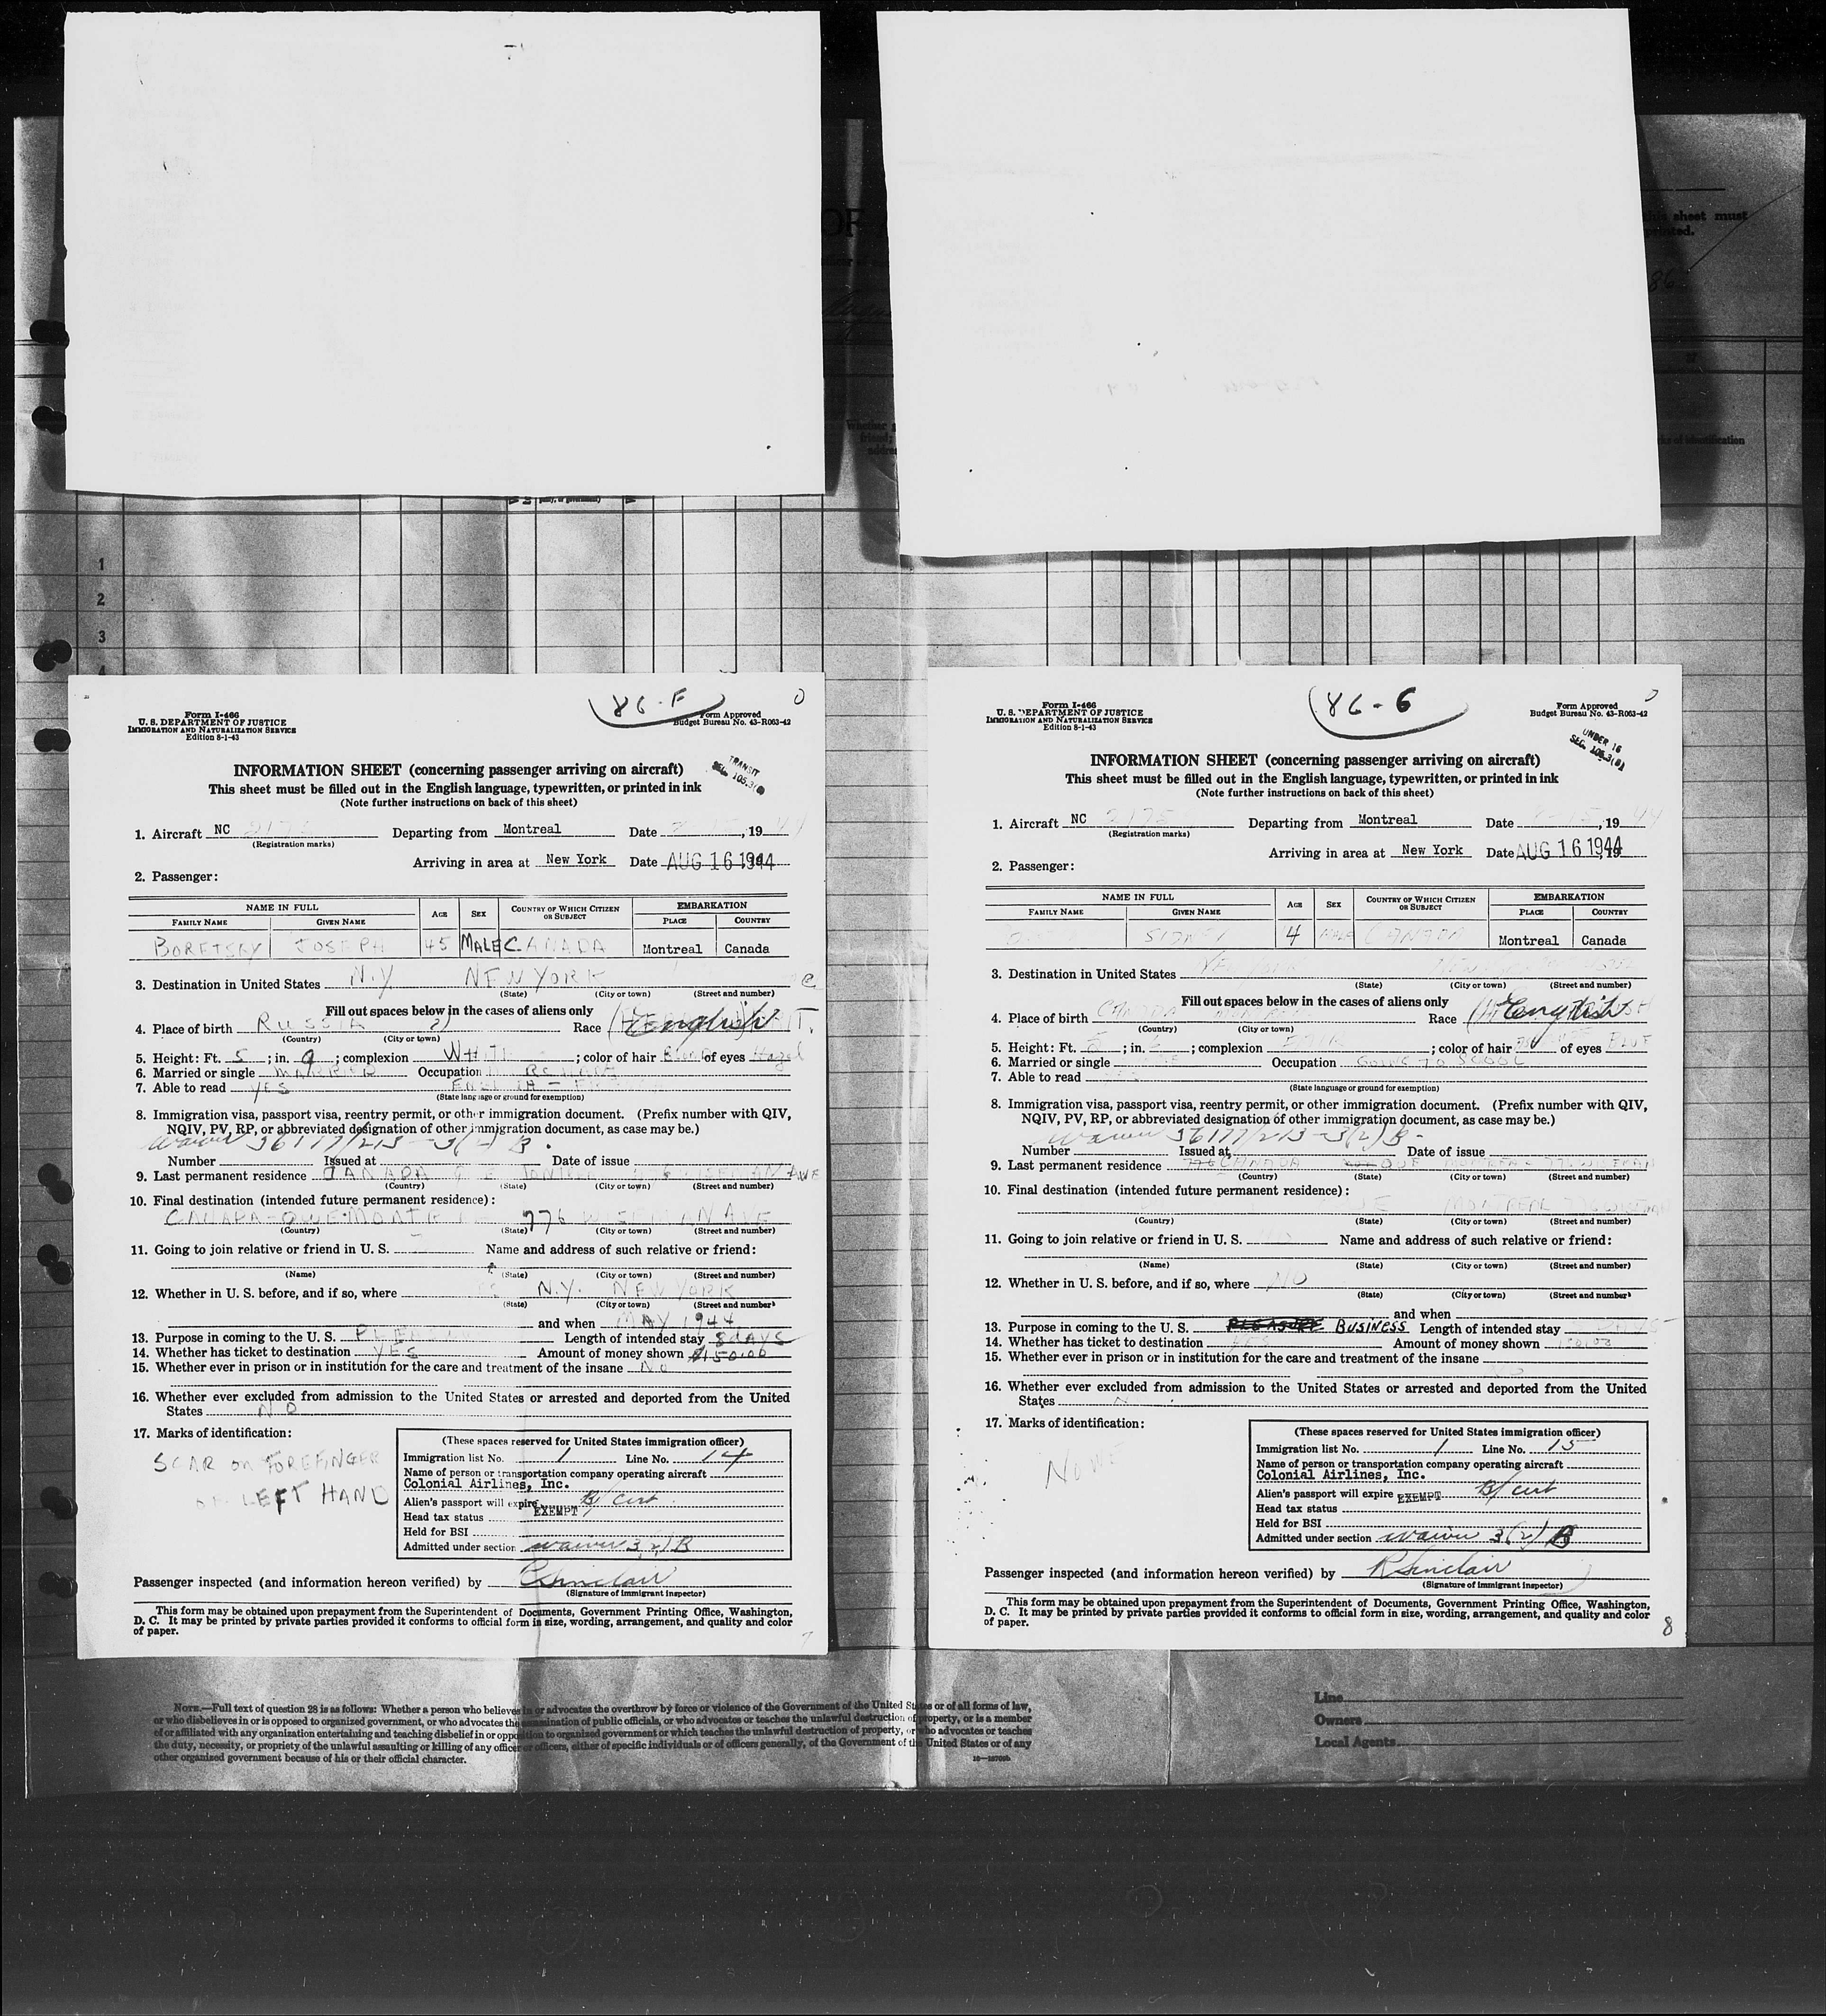 OF
this sheet must
printed.
86
Whether
friend;
1
2
3
4
86-F
Form I-466
U. S. DEPARTMENT OF JUSTICE
IMMIGRATION AND NATURALIZATION SERVICE
Edition 8-1-43
Form Approved
Budget Bureau No. 43-R063-42
TRANSIT
SEC. 105.3(
INFORMATION SHEET (concerning passenger arriving on aircraft)
This sheet must be filled out in the English language, typewritten, or printed in ink
(Note further instructions on back of this sheet)
1. Aircraft NC Departing from Montreal Date , 19 44
(Registration marks)
Arriving in area at New York Date AUG 16 1944
2. Passenger:
NAME IN FULL AGE SEX COUNTRY OF WHICH CITIZEN OR SUBJECT EMBARKATION
FAMILY NAME GIVEN NAME PLACE COUNTRY
BORETSKY JOSEPH 45 MALE CANADA Montreal Canada
3. Destination in United States N.Y. NEW YORK
(State) (City or town) (Street and number)
Fill out spaces below in the cases of aliens only
4. Place of birth RUSSIA Race English
(Country) (City or town)
5. Height: Ft. 5 ; in. 9 ; complexion WHITE ; color of hair Blond of eyes Hazel
6. Married or single MARRIED Occupation
7. Able to read YES
(State language or ground for exemption)
8. Immigration visa, passport visa, reentry permit, or other immigration document. (Prefix number with QIV,
NQIV, PV, RP, or abbreviated designation of other immigration document, as case may be.)
Waiver 36177/213 - 3(2) B.
Number Issued at Date of issue
9. Last permanent residence CANADA AVE
(Country) (State) (City or town) (Street and number)
10. Final destination (intended future permanent residence):
CANADA-QUE-MONTR 776 WISEMAN AVE
(Country) (State) (City or town) (Street and number)
11. Going to join relative or friend in U. S. Name and address of such relative or friend:
(Name) (State) (City or town) (Street and number)
12. Whether in U. S. before, and if so, where N.Y. NEW YORK
(State) (City or town) (Street and number)
and when MAY 1944
13. Purpose in coming to the U. S. PLEASURE Length of intended stay 8 DAYS
14. Whether has ticket to destination YES Amount of money shown $150.00
15. Whether ever in prison or in institution for the care and treatment of the insane No
16. Whether ever excluded from admission to the United States or arrested and deported from the United
States NO
17. Marks of identification:
SCAR on FOREFINGER
OF LEFT HAND
(These spaces reserved for United States immigration officer)
Immigration list No. 1 Line No. 14
Name of person or transportation company operating aircraft
Colonial Airlines, Inc.
Alien's passport will expire B/cert
Head tax status EXEMPT
Held for BSI
Admitted under section waiver 3(2) B
Passenger inspected (and information hereon verified) by R Sinclair
(Signature of immigrant inspector)
This form may be obtained upon prepayment from the Superintendent of Documents, Government Printing Office, Washington,
D. C. It may be printed by private parties provided it conforms to official form in size, wording, arrangement, and quality and color
of paper.
7
86-G
Form I-466
U. S. DEPARTMENT OF JUSTICE
IMMIGRATION AND NATURALIZATION SERVICE
Edition 8-1-43
Form Approved
Budget Bureau No. 43-R063-42
UNDER 16
SEC. 105.3(
INFORMATION SHEET (concerning passenger arriving on aircraft)
This sheet must be filled out in the English language, typewritten, or printed in ink
(Note further instructions on back of this sheet)
1. Aircraft NC Departing from Montreal Date , 19 44
(Registration marks)
Arriving in area at New York Date AUG 16 1944
2. Passenger:
NAME IN FULL AGE SEX COUNTRY OF WHICH CITIZEN OR SUBJECT EMBARKATION
FAMILY NAME GIVEN NAME PLACE COUNTRY
SIDNEY 4 MALE CANADA Montreal Canada
3. Destination in United States
(State) (City or town) (Street and number)
Fill out spaces below in the cases of aliens only
4. Place of birth CANADA Race English
(Country) (City or town)
5. Height: Ft. ; in. ; complexion FAIR ; color of hair of eyes BLUE
6. Married or single Occupation GOING TO SCOOL
7. Able to read
(State language or ground for exemption)
8. Immigration visa, passport visa, reentry permit, or other immigration document. (Prefix number with QIV,
NQIV, PV, RP, or abbreviated designation of other immigration document, as case may be.)
Waiver 36177/213-3(2) B.
Number Issued at Date of issue
9. Last permanent residence CANADA QUE MONTREAL
(Country) (State) (City or town) (Street and number)
10. Final destination (intended future permanent residence):
MONTREAL
(Country) (State) (City or town) (Street and number)
11. Going to join relative or friend in U. S. Name and address of such relative or friend:
(Name) (State) (City or town) (Street and number)
12. Whether in U. S. before, and if so, where NO
(State) (City or town) (Street and number)
and when
13. Purpose in coming to the U. S. PLEASURE BUSINESS Length of intended stay
14. Whether has ticket to destination Amount of money shown
15. Whether ever in prison or in institution for the care and treatment of the insane
16. Whether ever excluded from admission to the United States or arrested and deported from the United
States
17. Marks of identification:
NONE
(These spaces reserved for United States immigration officer)
Immigration list No. 1 Line No. 15
Name of person or transportation company operating aircraft
Colonial Airlines, Inc.
Alien's passport will expire B/cert
Head tax status EXEMPT
Held for BSI
Admitted under section waiver 3(2) B
Passenger inspected (and information hereon verified) by R Sinclair
(Signature of immigrant inspector)
This form may be obtained upon prepayment from the Superintendent of Documents, Government Printing Office, Washington,
D. C. It may be printed by private parties provided it conforms to official form in size, wording, arrangement, and quality and color
of paper.
8
NOTE.—Full text of question 28 is as follows: Whether a person who believes in or advocates the overthrow by force or violence of the Government of the United States or of all forms of law,
or who disbelieves in or is opposed to organized government, or who advocates the assassination of public officials, or who advocates or teaches the unlawful destruction of property, or is a member
of or affiliated with any organization entertaining and teaching disbelief in or opposition to organized government or which teaches the unlawful destruction of property, or who advocates or teaches
the duty, necessity, or propriety of the unlawful assaulting or killing of any officer or officers, either of specific individuals or of officers generally, of the Government of the United States or of any
other organized government because of his or their official character.
Line
Owners
Local Agents